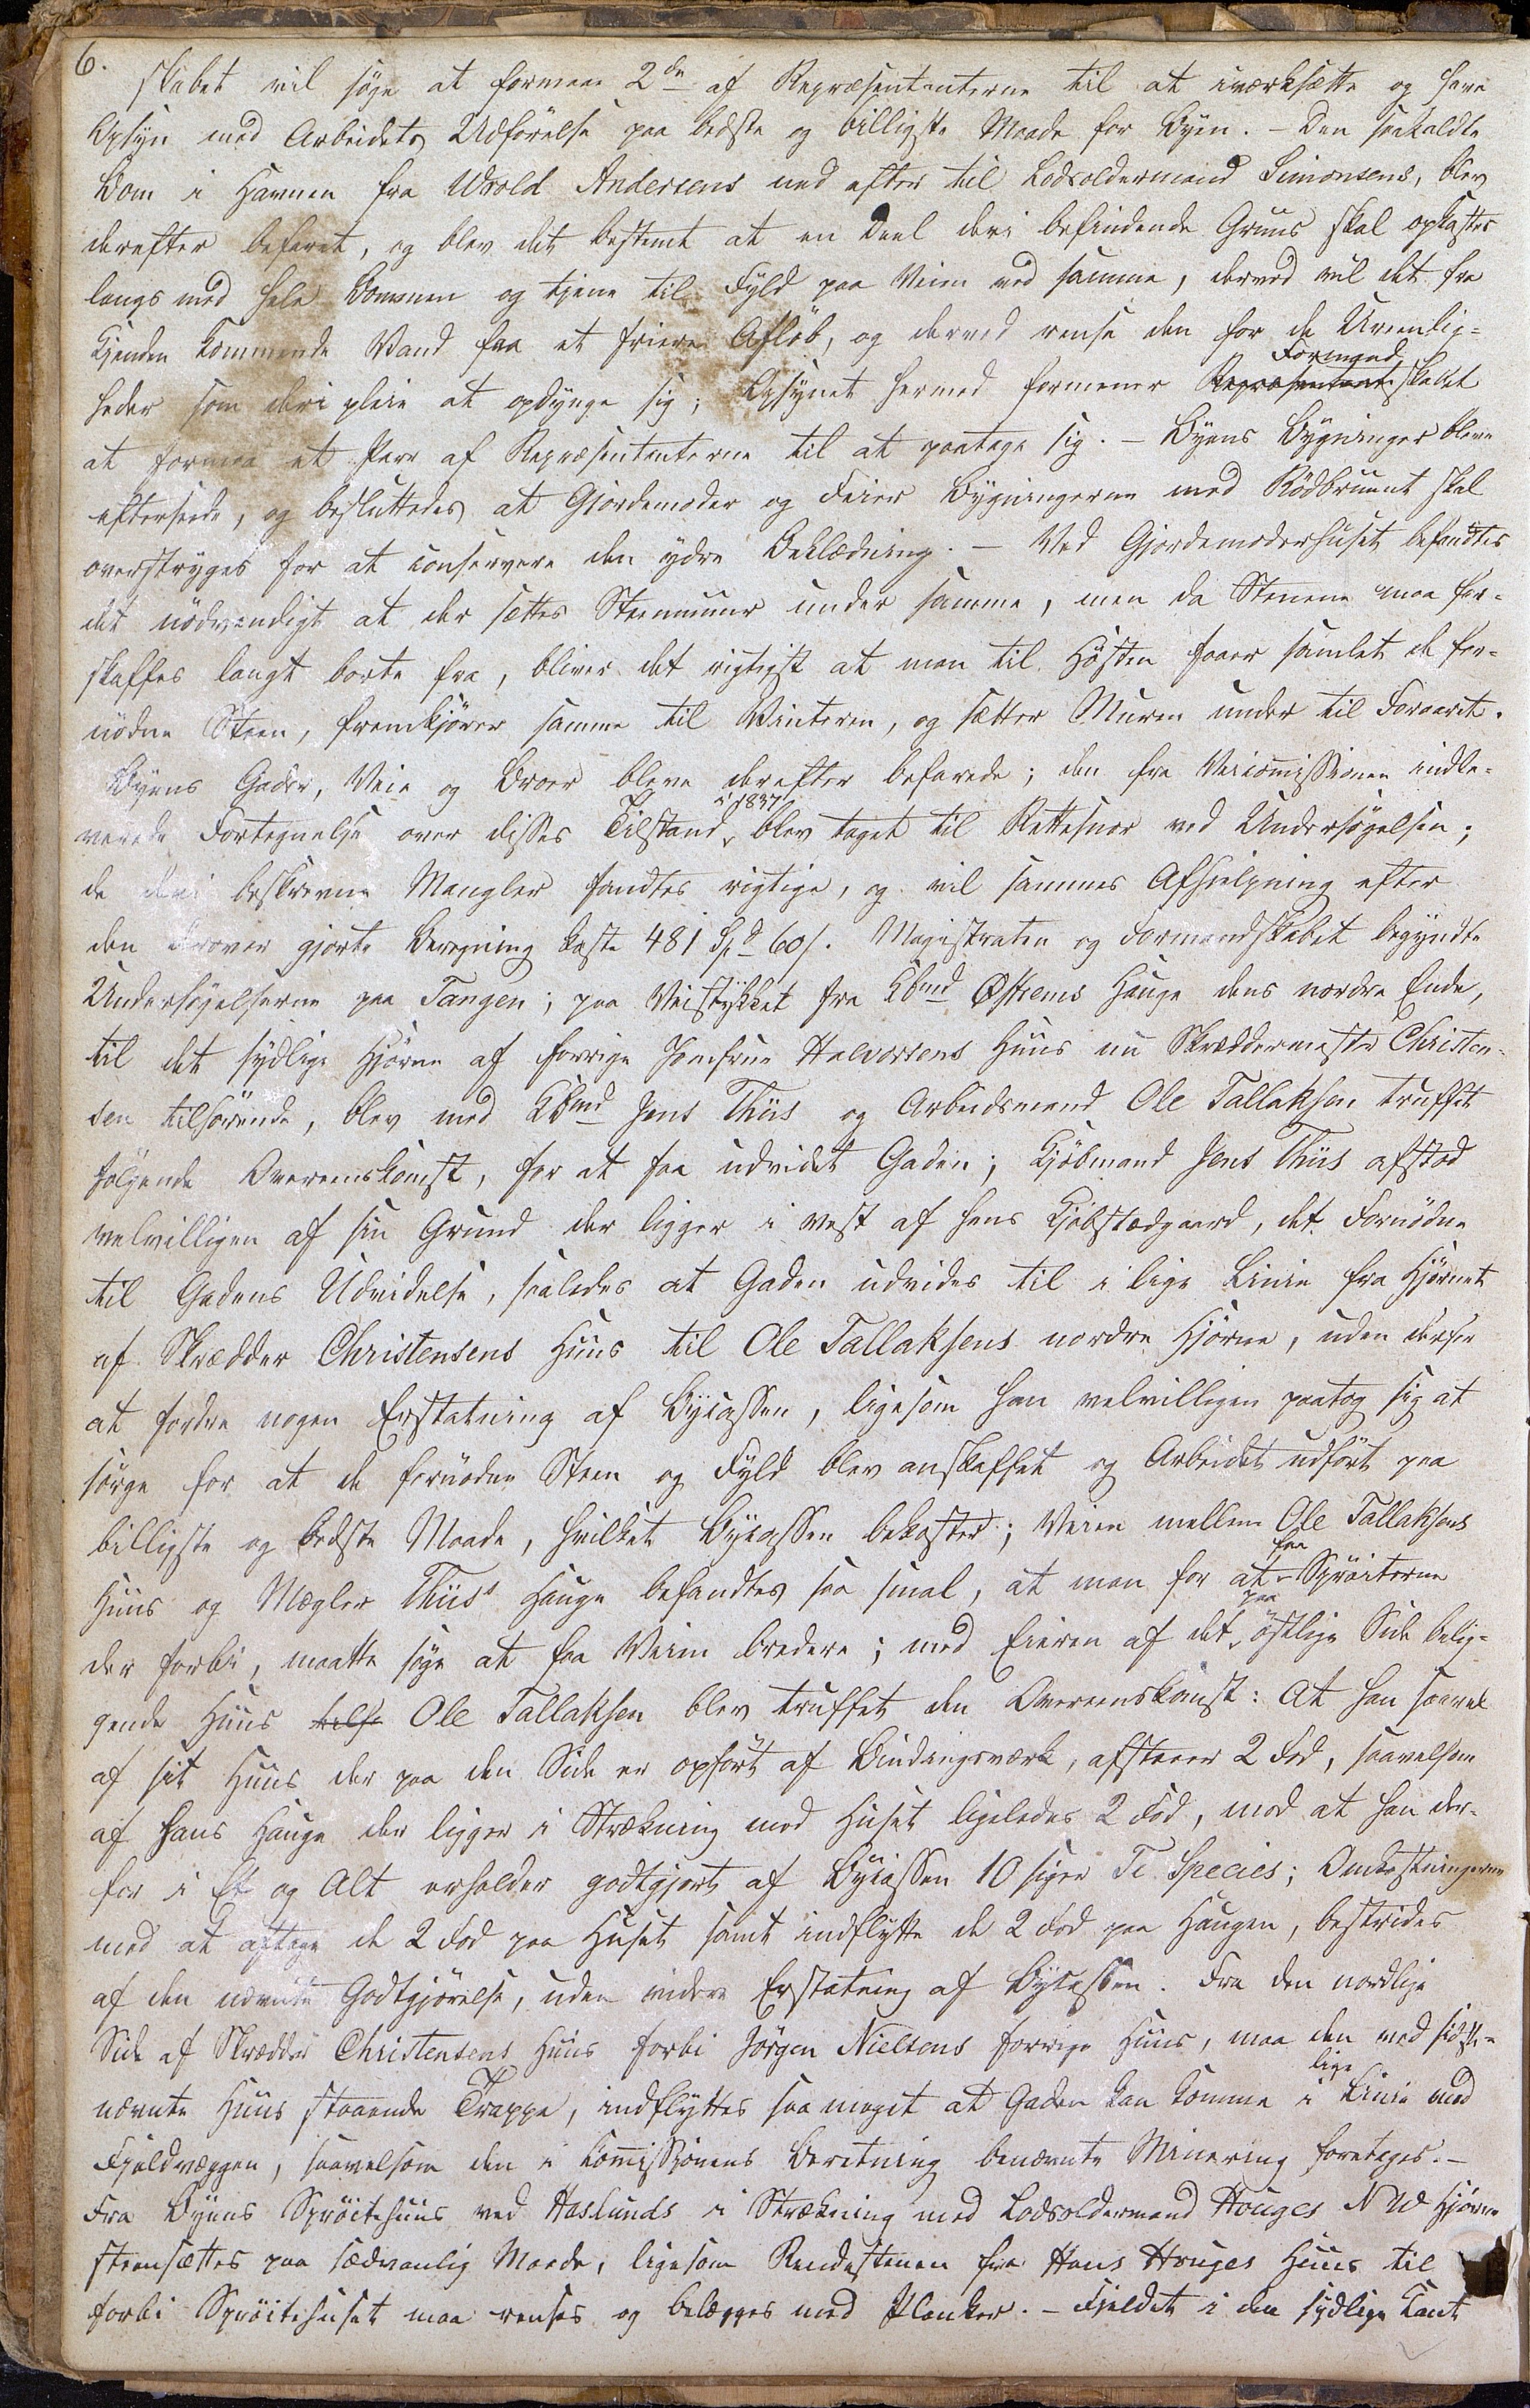 6.
skabet vil søge at formaae 2de af Repræsentanterne til at iværksætte og have
Opsyn med Arbeidets Udførelse paa bedste og billigste Maade for Byen. – Den saakaldte
Dam i Havnen fra Wrold Andersens ned efter til Lodsoldermand Simonsens, blev
derefter befaret, og blev det bestemt at en Deel deri befindende Gruus skal opkastes
langs med hele Dammen og tjene til Fyld paa Veien ved samme, derved vil det fra
Kjenden kommende Vand faa et friere Afløb, og derved rense den for de Ureenlig=
heder som deri pleie at opdynge sig; Opsynet hermed formener Formand skabet
at formaa et Parr af Repræsentanterne til at paatage sig. – Byens Bygninger bleve
efterseede, og besluttedes at Gjordemoder og Feier Bygningerne med Rödbruunt skal
overstryges for at conservere den ydre Beklædning. – Ved Gjordemoderhuset befandtes
det nödvendigt at der sættes Steenmuur under samme, men da Stenene maa for=
skaffes langt borte fra, bliver det rigtigst at man til Høsten faaer samlet de for=
nödne Steen, fremkjører samme til Vinteren, og sætter Muren under til Foraaret.
Byens Gader, Veie og Broer bleve derefter befarede; den fra Veicommissionen indle=
verede Fortegnelse over disses Tilstand i 1837 blev taget til Rettesnor ved Undersøgelsen;
de deri beskrevne Mangler fandtes rigtige, og vil sammes Afhjelpning efter
den derover gjorte Beregning koste 481 Spd 60 s. Magistraten og Formandskabet begyndte
Undersøgelserne paa Tangen; paa Veistykket fra Kbmd Østrems Hauge dens nordre Ende,
til det sydlige Hjørne af forrige Jomfrue Halvorsens Huus nu Skræddermester Christen=
sen tilhørende, blev med Kbmd Jens Thiis og Arbeidsmand Ole Tallaksen truffet
følgende Overeenskomst, for at faa udvidet Gaden; Kjøbmand Jens Thiis afstod
velvilligen af sin Grund der ligger i Vest af hans Kjøbstædgaard, det Fornödne
til Gadens Udvidelse, saaledes at Gaden udvides til i lige Linie fra Hjørnet
af Skrædder Christensens Huus til Ole Tallaksens nordre Hjørne, uden derfor
at fordre nogen Erstatning af Bycassen, ligesom han velvilligen paatog sig at
sørge for at de fornødne Steen og Fyld blev anskaffet og Arbeidet udført paa
billigste og bedste Maade, hvilket Bycassen bekoster; Veien mellem Ole Tallaksens
Huus og Mægler Thiis's Hauge befandtes saa smal, at man for at faa Sprøiterne
der forbi, maatte søge at faa Veien bredere; med Eieren af det paa østlige Side belig=
gende Huus Ole Tallaksen blev truffet den Overeenskomst: At han saavel
af sit Huus der paa den Side er opført af Bindingsværk, afstaaer 2 Fod, saavelsom
af hans Hauge der ligger i Strækning med Huset ligeledes 2 Fod, mod at han der=
for i Et og Alt erholder godtgjort af Bycassen 10 siger Ti Species; Omkostningerne
med at aftage de 2 Fod paa Huset samt indflytte de 2 Fod paa Haugen, bestrides
af den nævnte Godtgjørelse, uden videre Erstatning af Bycassen. Fra den nordlige
Side af Skrædder Christensens Huus forbi Jørgen Nielsens forrige Huus, maa den ved sidst=
nævnte Huus staaende Trappe, indflyttes saa meget at Gaden kan komme i lige Linie med
Fjeldvæggen, saavelsom den i Commissionens Beretning benævnte Minering foretages. –
Fra Byens Sprøitehuus ved Haslunds i Strækning med Lodsoldermand Houges N W Hjørne
steensættes paa sædvanlig Maade, ligesom Rendestenen fra Hans Houges Huus til
forbi Sprøitehuset maa renses og belægges med Planker. – Fjeldet i den sydlige Kant